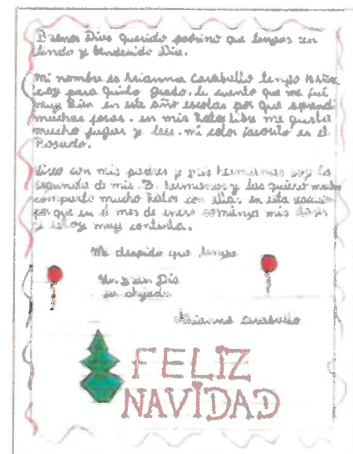 Buenos Dias Querido padrino que tengas un
lindo y bendecido Dia.
Mi nombre es Arianna Caraballo tengo
voy para Quinto grado. le cuento que me fué
muy Bien en este año escolar por que aprendi
muchas cosas. en mis Ratos libre me gusta
mucho jugar y leer. mi color favorito es el
Rosado.
Vivo con mis padres y mis hermanas soy la
segunda de mis 3. hermanas y las quiero mucho
comparto mucho Ratos con ellas en esta
por que en el mes de enero comienza mis clases
y estoy muy contenta.
Me despido que tengas
Un Buen Dia
su ahijada
Arianna Caraballo
FELIZ
NAVIDAD